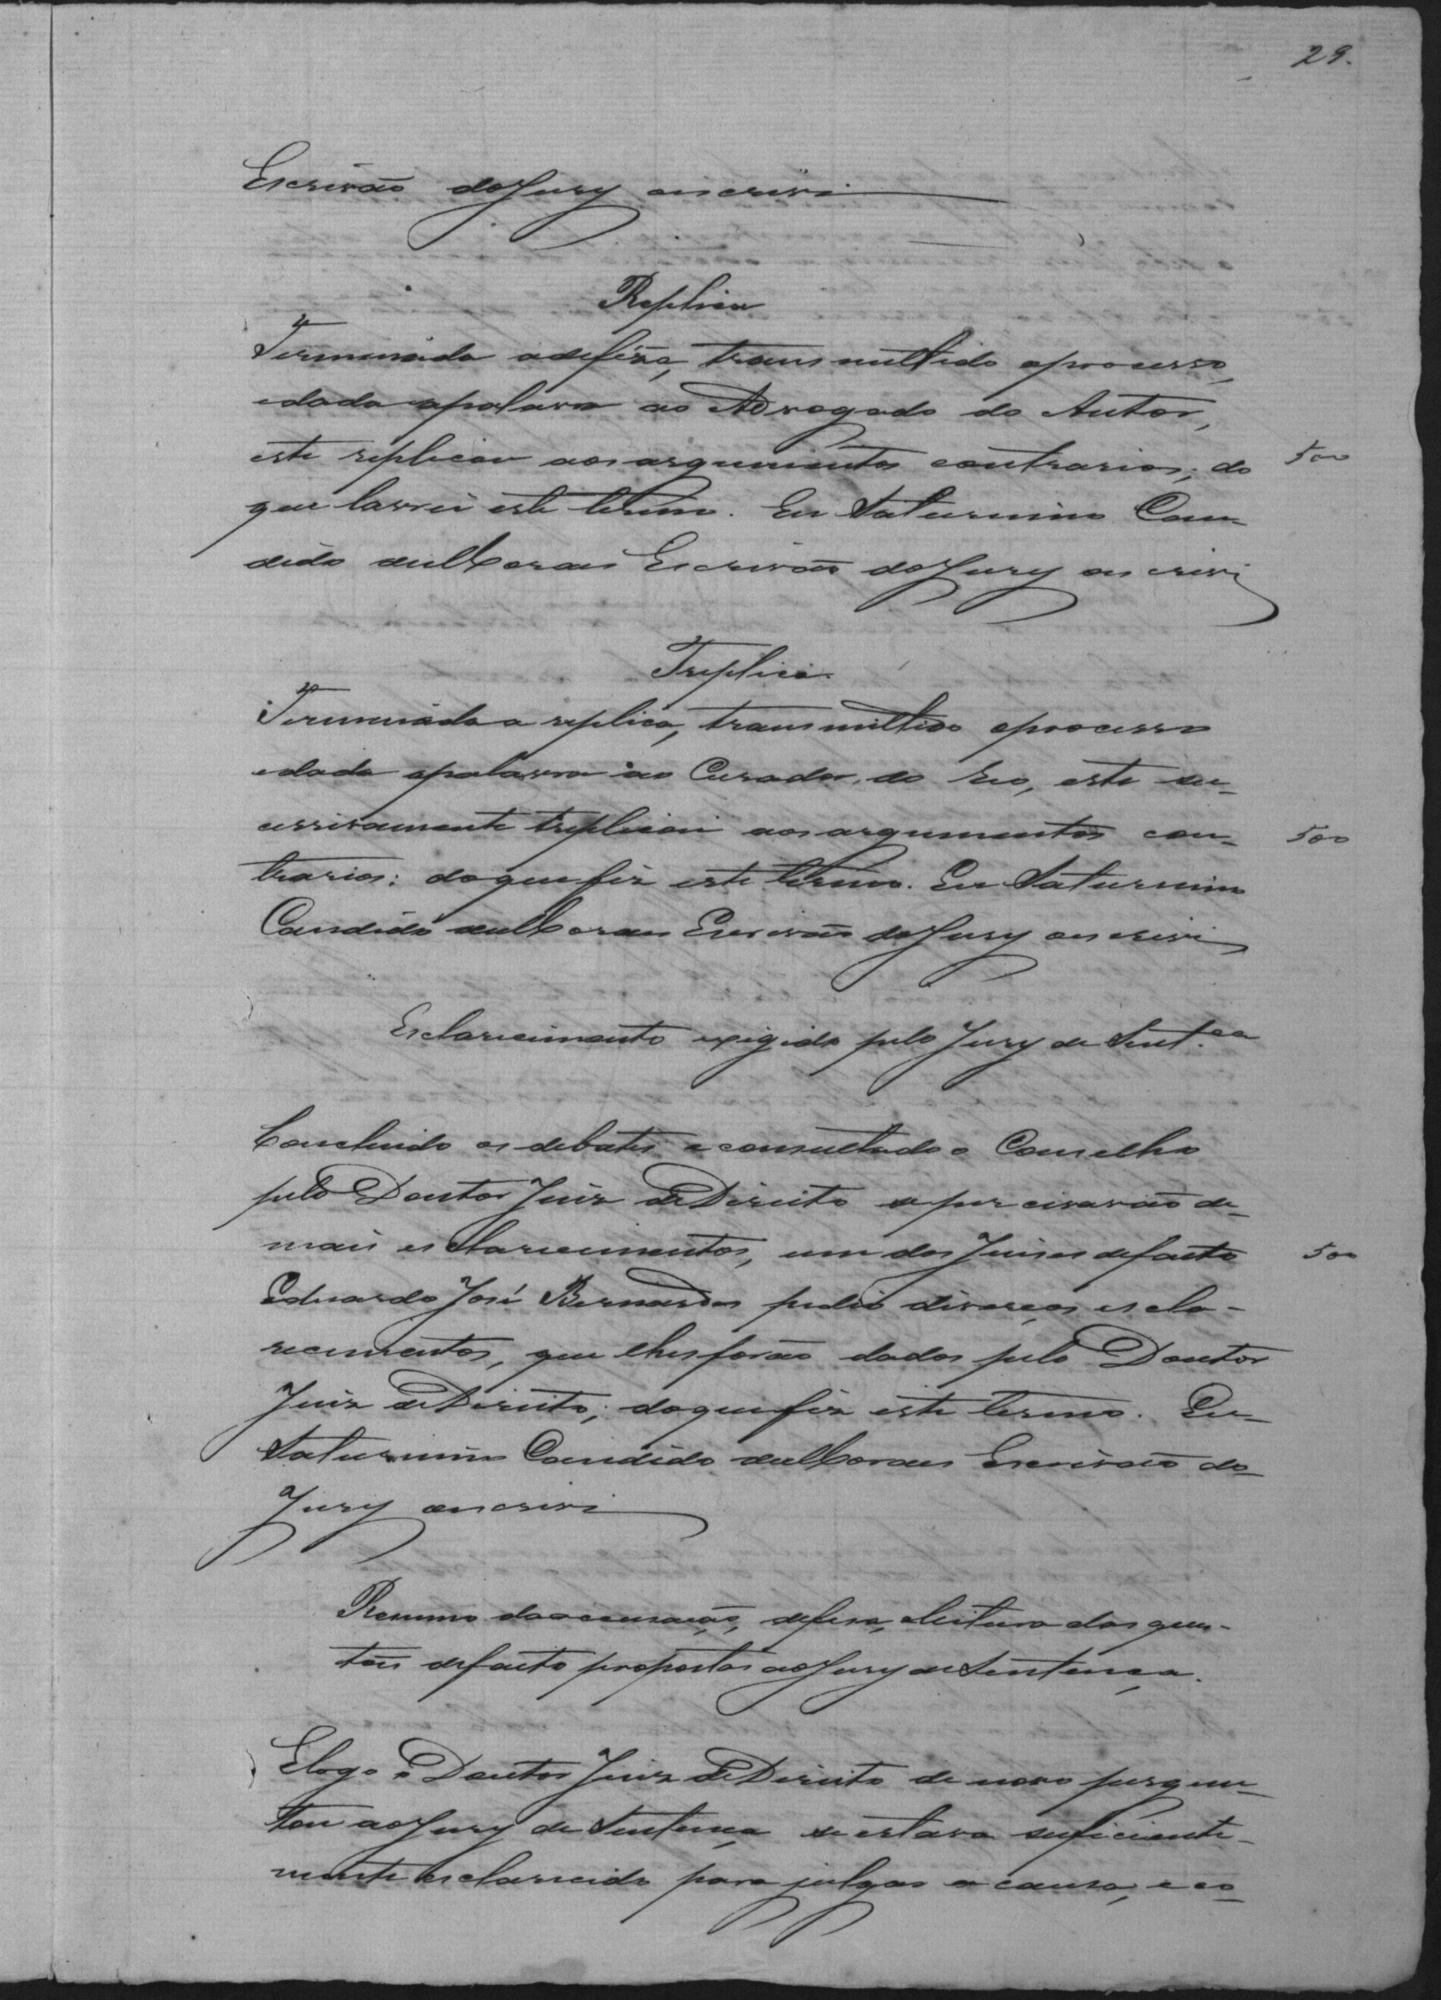 29.
Escrivão do Jury o escrivi
Replica
Terminada a defeza, transmittido o processo,
e dada a palavra ao Advogado do Autor,
este replicou aos argumentos contrarios; do
500
que lavrei este termo. Eu Saturnino Can-
dido de Moraes Escrivão do Jury o escrivi
Treplica
Terminada a replica, transmittido o processo
e dada a palavra ao Curador do Reo, este suc-
cessivamente treplicou aos argumentos con-
500
trarios: do que fiz este termo. Eu Saturnino
Candido de Moraes Escrivão do Jury o escrivi
Esclarecimento exigido pelo Jury de Sent.ça
Concluido os debates e consultado o Conselho
pelo Doutor Juiz de Direito se percisavão de
mais esclarecimentos, um dos Juises de facto
500
Eduardo José Bernardes pedio diverços escla-
recimentos, que lhes forão dados pelo Doutor
Juiz de Direito; do que fiz este termo. Eu
Saturnino Candido de Moraes Escrivão do
Jury o escrivi
Resumo da accusação, defesa, e leitura dos quesi-
tos de facto propostos ao Jury de Sentença.
E logo o Doutor Juiz de Direito de novo pergun-
tou ao Jury de Sentença se estava suficiente-
mente esclarecido para julgar a causa, e co-